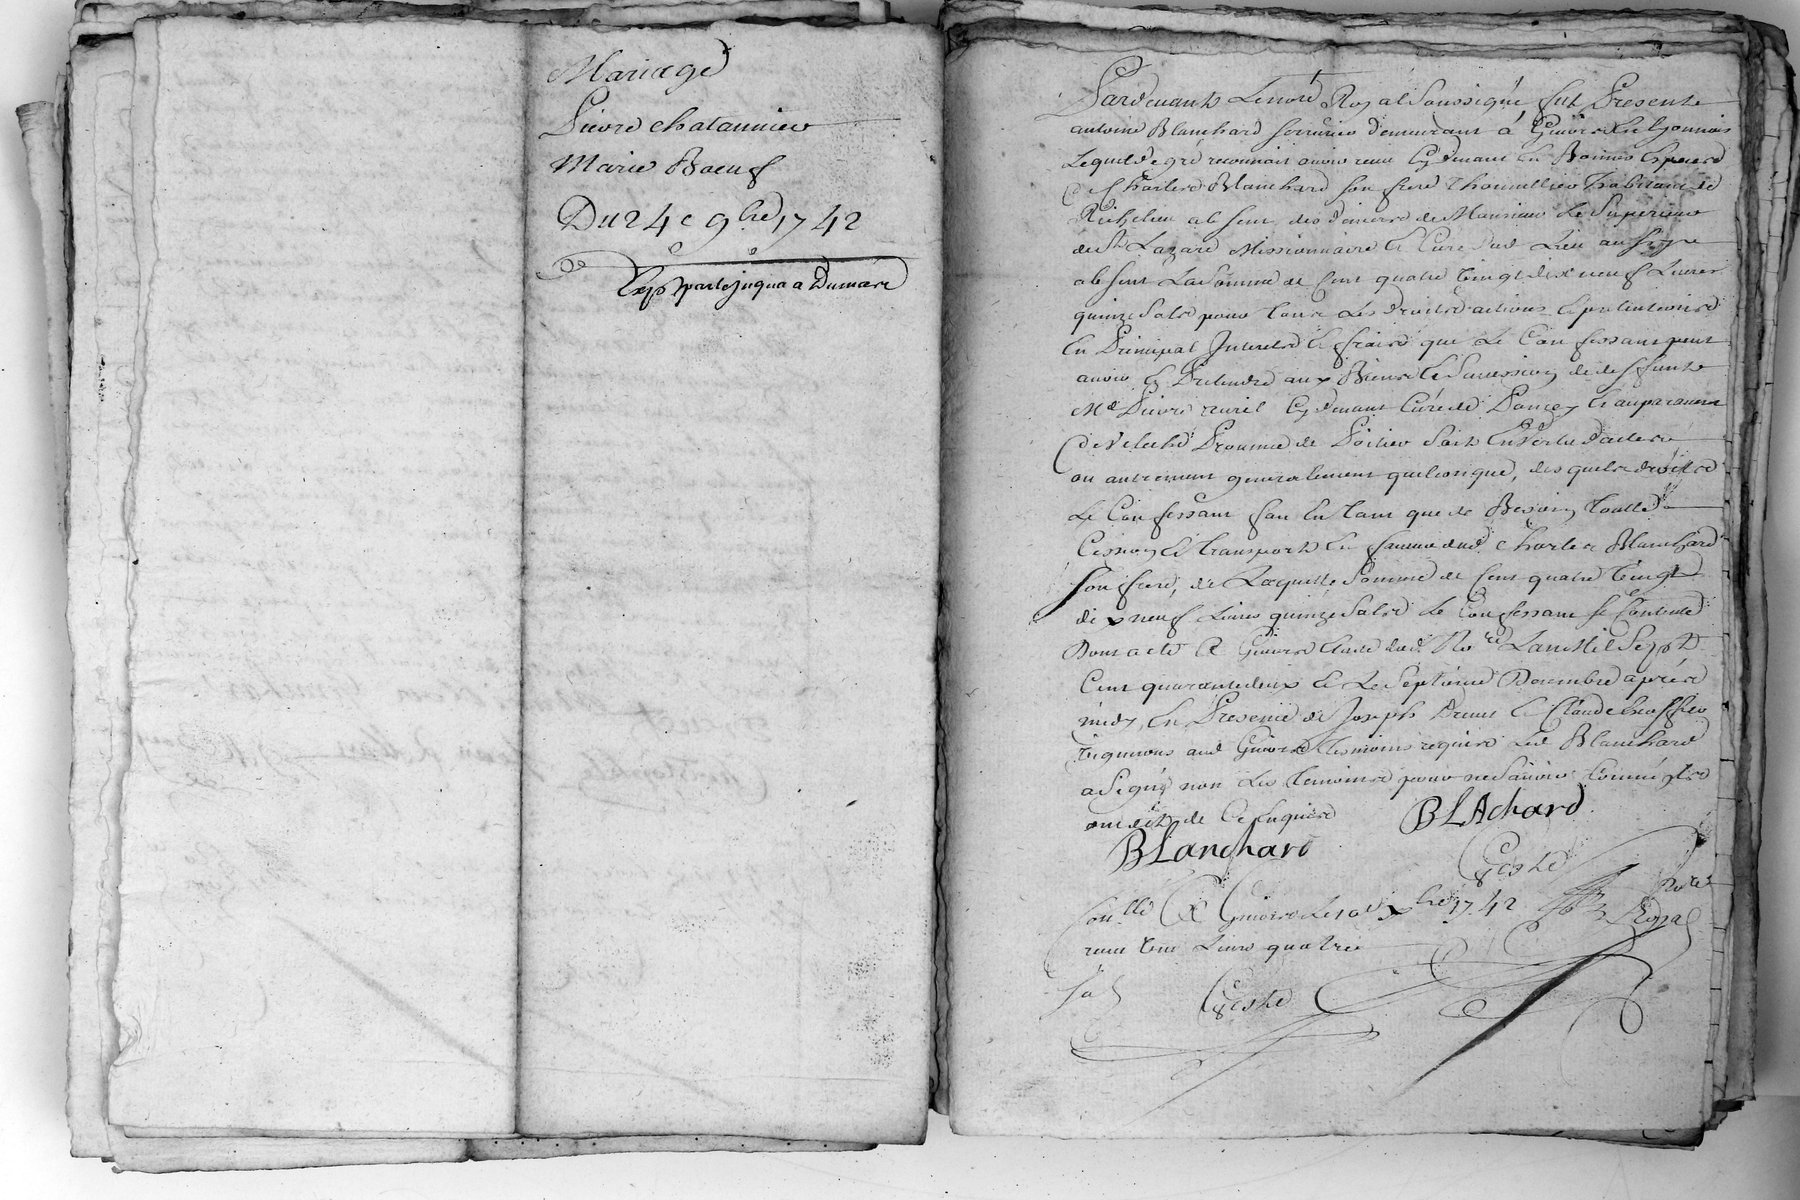 Mariage
Pierre chatannier
Marie Boeuf
Du 24e 9bre 1742
Exp part jusqua a Dumare
Pardevant Lenore Royal Soussigné fut Present
antoine Blanchard serrurier demeurant à Givors En Lyonnois
Lequel de gré reconnoit avoir receu Cydevant En Bonnes Especes
de Charles Blanchard son frere Chomellier habitant de
Richelieu absent des deniers de Monsieur Le Superieur
de St Lazare Missionnaire Et Curé dud Lieu aussy
absent La Somme de Cent quatre Vingt dix neuf Livres
quinze Sols pour tous Les droits actions Et pretentions
En Principal Interets Et frais que Le Confessant peut
avoir Et Pretendre aux Biens Et Succession de deffunt
Me Pierre Cydevant Curé de Et auparavant
de Province de Poitier Soit En Vertu dactes
ou autrement generalement quelconque, des quels droits
Le Confessant fau En tant que de Besoing Toutte
Cession Et transport En faveur dud Charles Blanchard
Son frere, de Laquelle Somme de Cent quatre Vingt
dix neuf Livres quinze Sols Le Confessant Se Contente
Dont acte A Givors Etude dud. Nore Lan Mil Sept
Cent quarante deux Et Le Septieme Decembre après
midy, En Presence de Joseph Et Claude
Vignerons aud Givors temoins requis Led Blanchard
a Signé non Les temoins pour ne Sçavoir Comme ils
ont dit de Ce Enquis
BLAchard
BLanchard
Geste Nore Royal
Con.llé A Givors Le 10e xbre 1742
receu Une Livre quatre
Sols
Geste